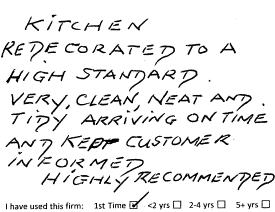 KITCHEN
REDECORATED TO A
HIGH STANDARD.
VERY, CLEAN, NEAT AND.
TIDY ARRIVING ON TIME
AND KEPT CUSTOMER
INFORMED
HIGHLY RECOMMENDED
I have used this firm: 1st Time ☑ <2 yrs ☐ 2-4 yrs ☐ 5+ yrs ☐